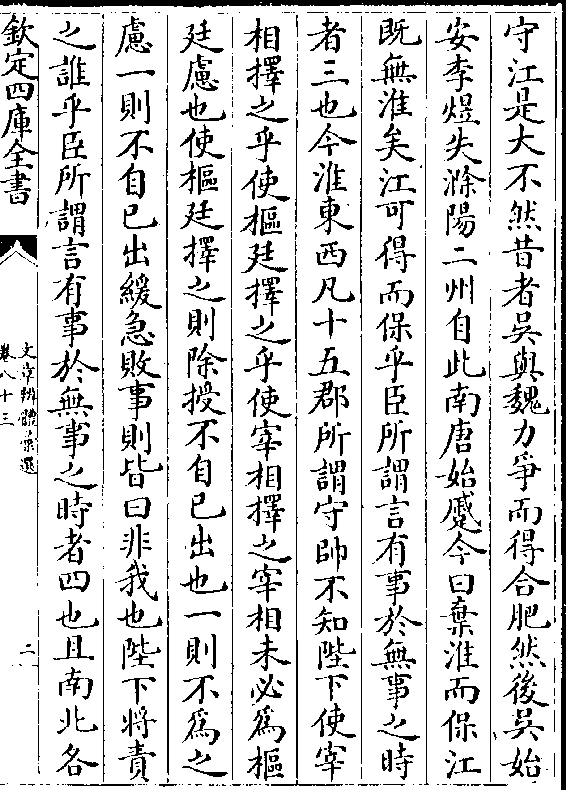 守江是大不然昔者吳與魏力爭而得合肥然後吳始
安李煜失滁陽二州自此南唐始蹙今曰棄淮而保江
既無淮矣江可得而保乎臣所謂言有事於無事之時
者三也今淮東西凡十五郡所謂守帥不知陛下使宰
相擇之乎使樞廷擇之乎使宰相擇之宰相未必為樞
廷慮也使樞廷擇之則除授不自已出也一則不為之
慮一則不自已出緩急敗事則皆曰非我也陛下將責
之誰乎臣所謂言有事於無事之時者四也且南北各
欽定四庫全書
文章辨體彙選
卷八十三
二